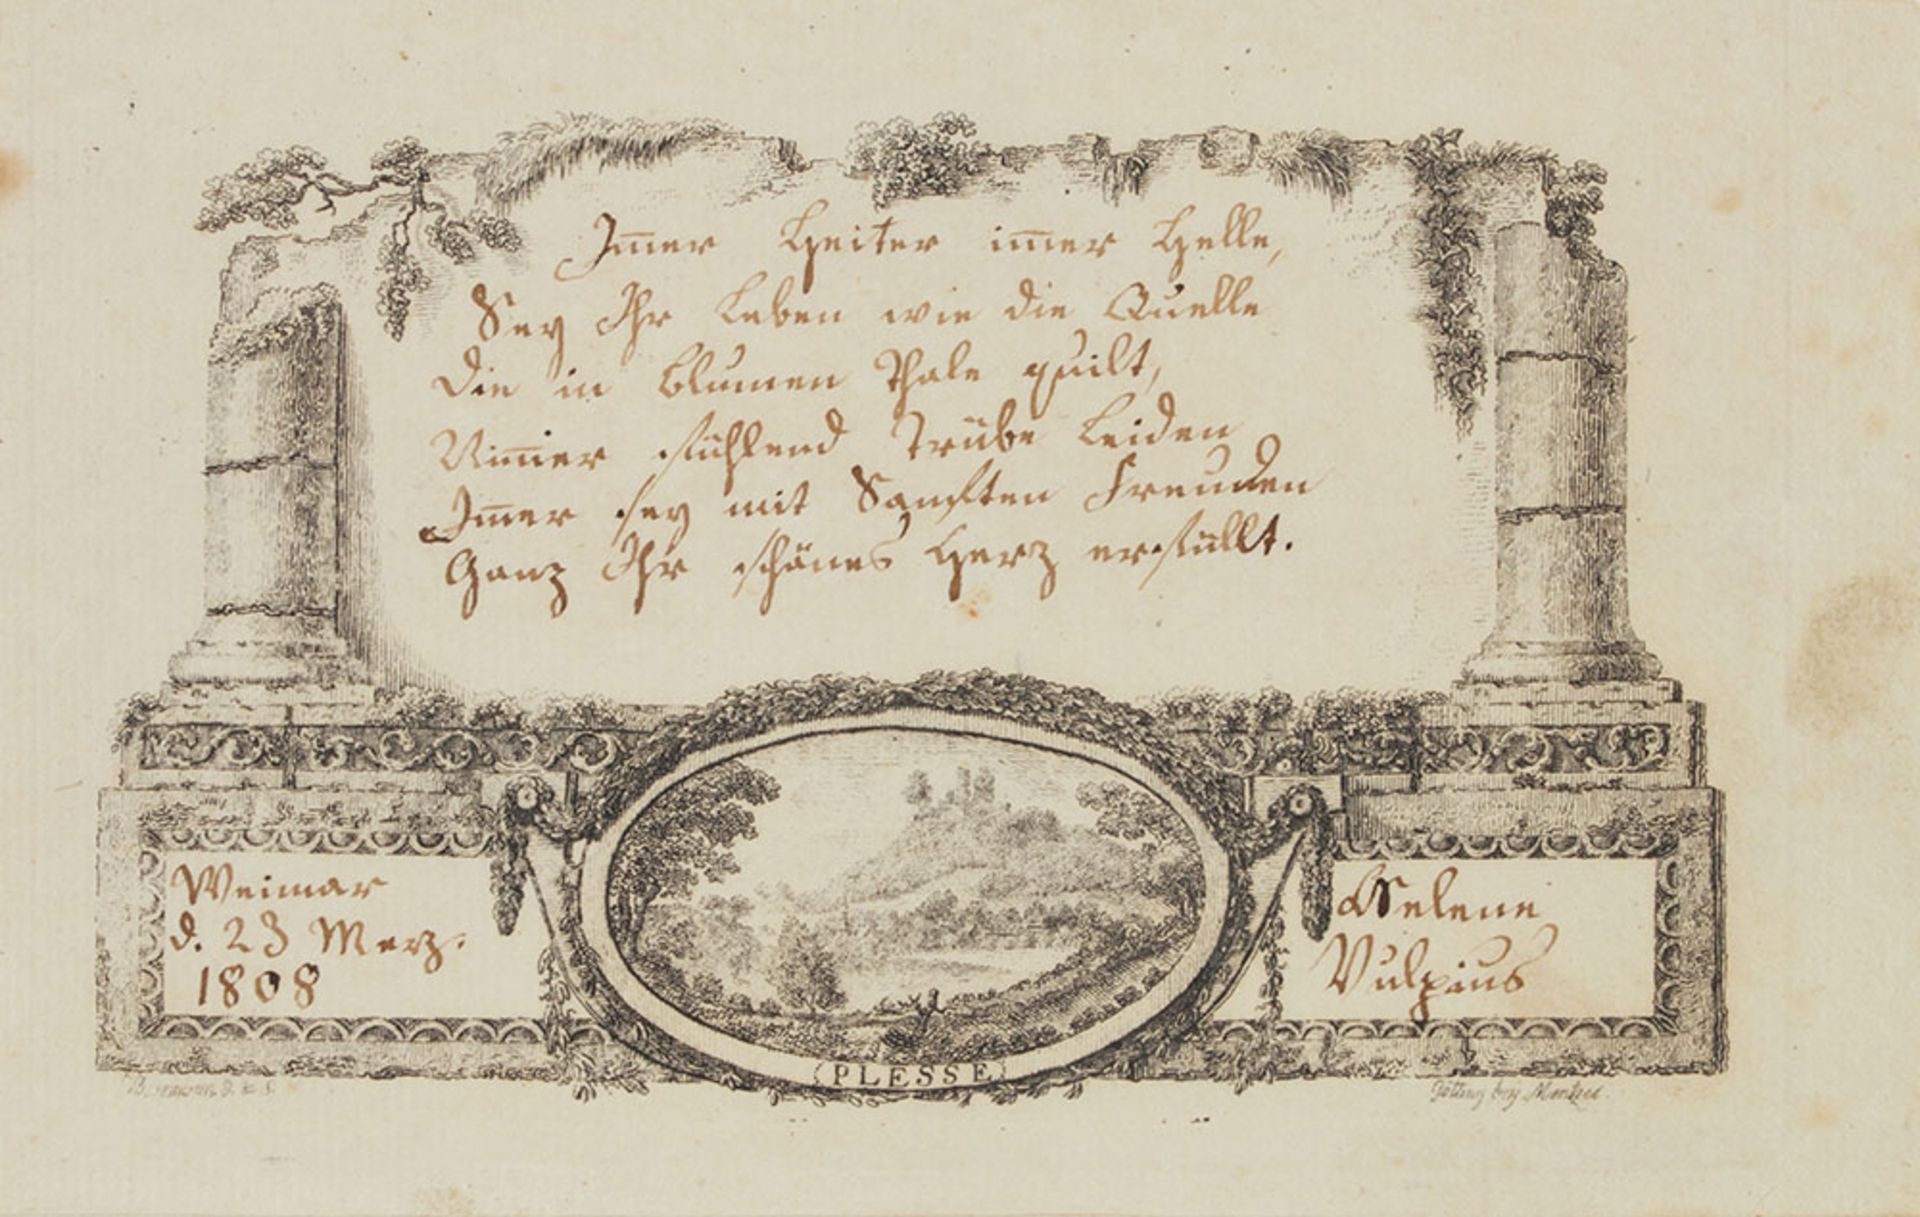 Im̅er Heiter im̅er Helle,
Sey Ihr Leben wie die Quelle
Die in blumen Thale quilt,
Nim̅er fühlend Trübe Leiden
Im̅er sey mit Sanften Freuden
Ganz Ihr schönes Herz erfüllt.
Weimar
d. 23 Merz.
1808
Helene
Vulpius
PLESSE
Götting bey